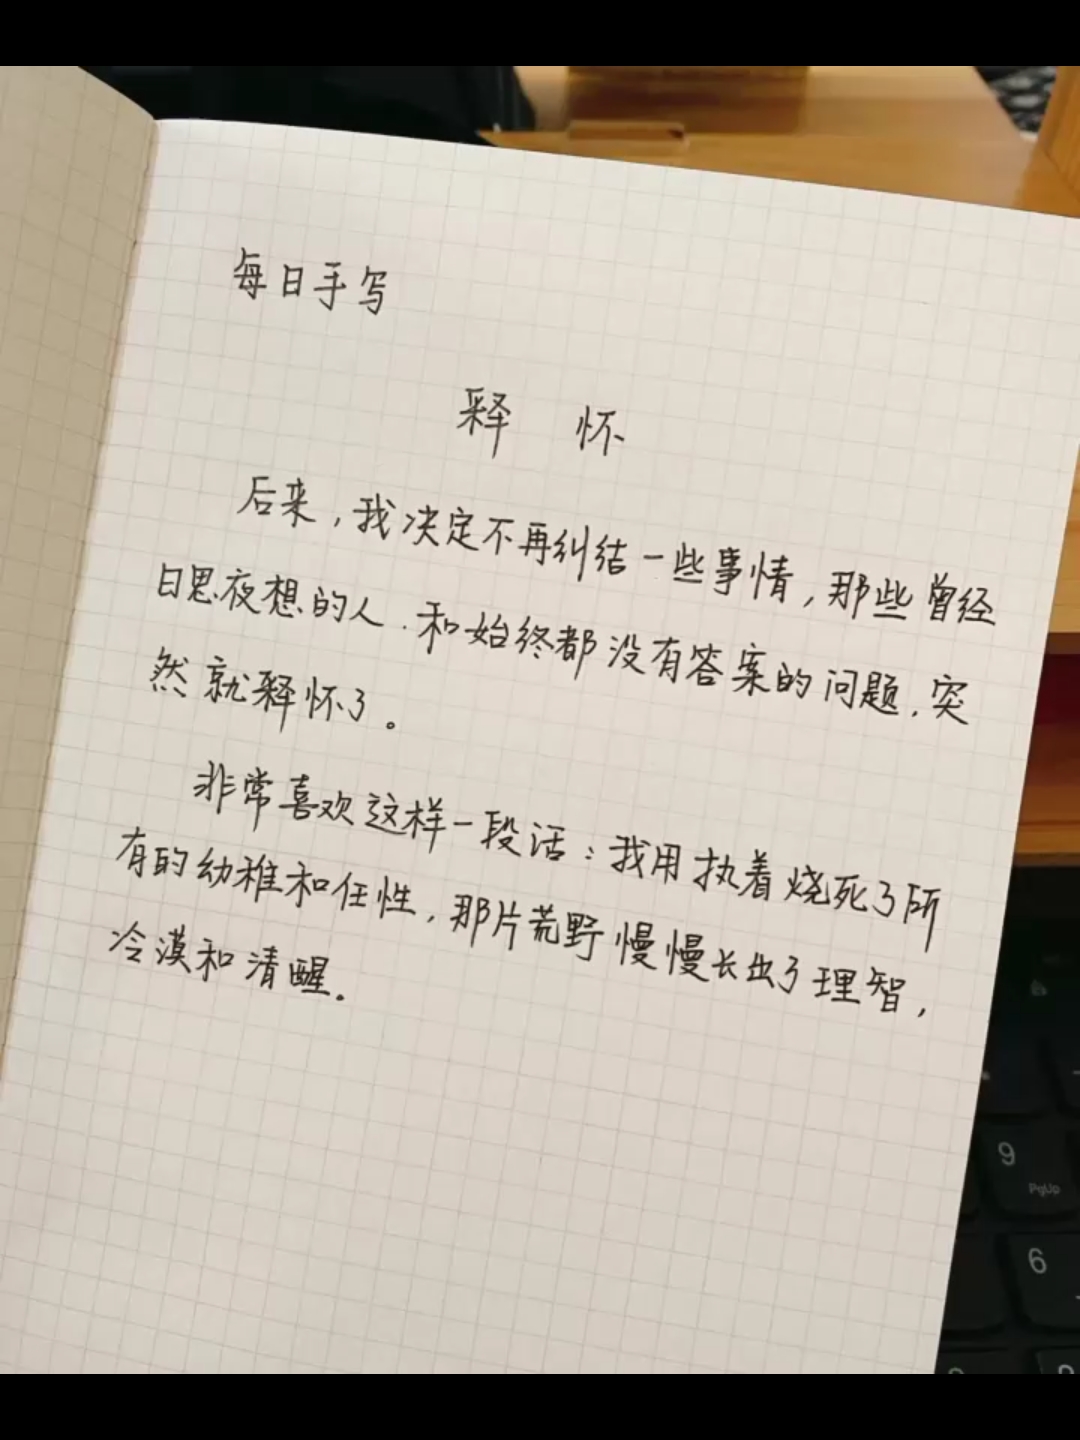 每日手写
释 怀
后来，我决定不再纠结一些事情，那些曾经
日思夜想的人．和始终都没有答案的问题．突
然就释怀了。
非常喜欢这样一段话：我用执着烧死了所
有的幼稚和任性，那片荒野慢慢长出了理智，
冷漠和清醒。
9
PgUp
6